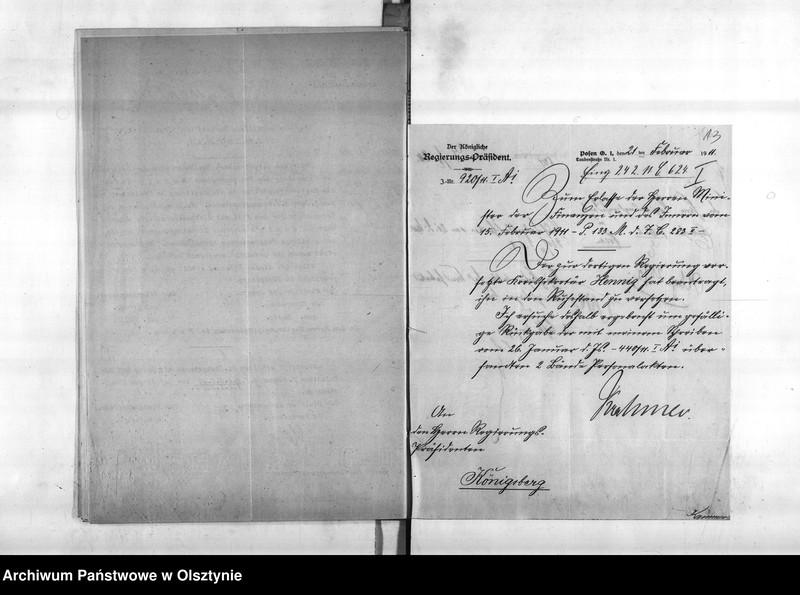 13
Der Königliche
Regierungs-Präsident.
J.-Nr. 920/11. I A¹
Posen O. 1, den 21 ten Februar 1911.
Taubenstraße Nr. 1.
Eing 24 2 11
Zum Erlasse der Herren Mini-
ster der Finanzen und des Innern vom
15. Februar 1911 – P. 133 M. d. J. C. 283 II –
Der zur dortigen Regierung ver-
setzte Kreissekretär Hennig hat beantragt,
ihn in den Ruhestand zu versetzen.
Ich ersuche deshalb ergebenst um gefälli-
ge Rückgabe der mit meinem Schreiben
vom 26. Januar d. Js. – 440/11. I A¹ über-
sandten 2 Bände Personalakten.
An
den Herrn Regierungs-
Präsidenten
Königsberg
Archiwum Państwowe w Olsztynie